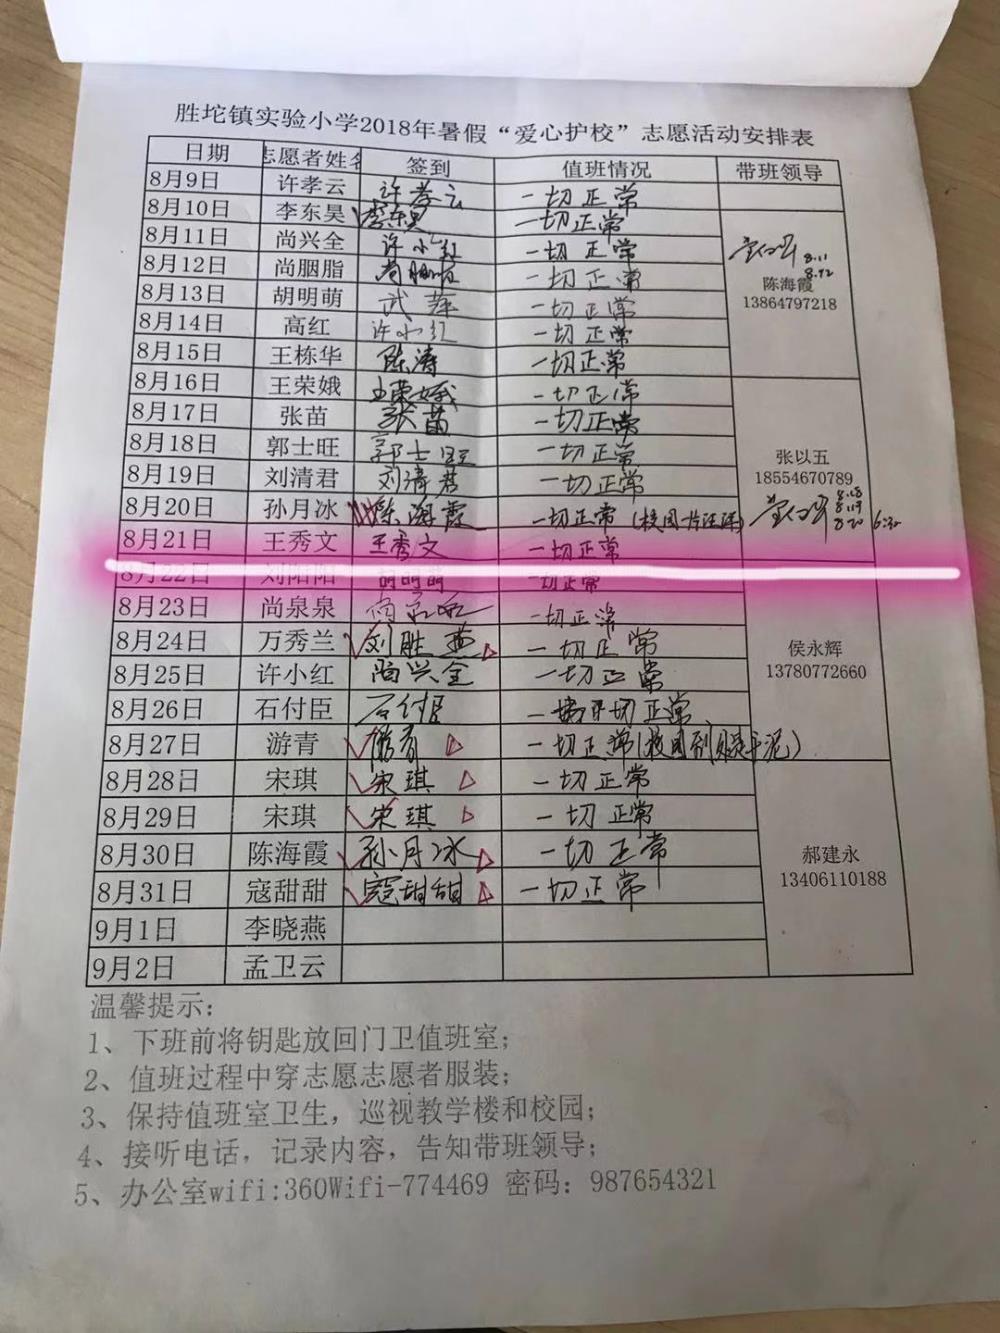 胜坨镇实验小学2018年暑假“爱心护校”志愿活动安排表
日期 志愿者姓名 签到 值班情况 带班领导
8月9日 许孝云 许孝云 一切正常
8月10日 李东昊 李东昊 一切正常
8月11日 尚兴全 许小红 一切正常 8.11
8月12日 尚胭脂 尚胭脂 一切正常 8.12
陈海霞
8月13日 胡明萌 武萍 一切正常 13864797218
8月14日 高红 许小红 一切正常
8月15日 王栋华 陈涛 一切正常
8月16日 王荣娥 王荣娥 一切正常
8月17日 张苗 张苗 一切正常
8月18日 郭士旺 郭士旺 一切正常 张以五
8月19日 刘清君 刘清君 一切正常 18554670789
8月20日 孙月冰 陈海霞 一切正常 8.18 8.19 8.20
8月21日 王秀文 王秀文 一切正常
8月22日 刘阳阳 胡明萌 一切正常
8月23日 尚泉泉 一切正常
8月24日 万秀兰 刘胜燕 一切正常 侯永辉
8月25日 许小红 尚兴全 一切正常 13780772660
8月26日 石付臣 石付臣 一切正常
8月27日 游青 游青 一切正常
8月28日 宋琪 宋琪 一切正常
8月29日 宋琪 宋琪 一切正常
8月30日 陈海霞 孙月冰 一切正常 郝建永
8月31日 寇甜甜 寇甜甜 一切正常 13406110188
9月1日 李晓燕
9月2日 孟卫云
温馨提示:
1、下班前将钥匙放回门卫值班室;
2、值班过程中穿志愿志愿者服装;
3、保持值班室卫生，巡视教学楼和校园;
4、接听电话，记录内容，告知带班领导;
5、办公室wifi:360Wifi-774469 密码: 987654321